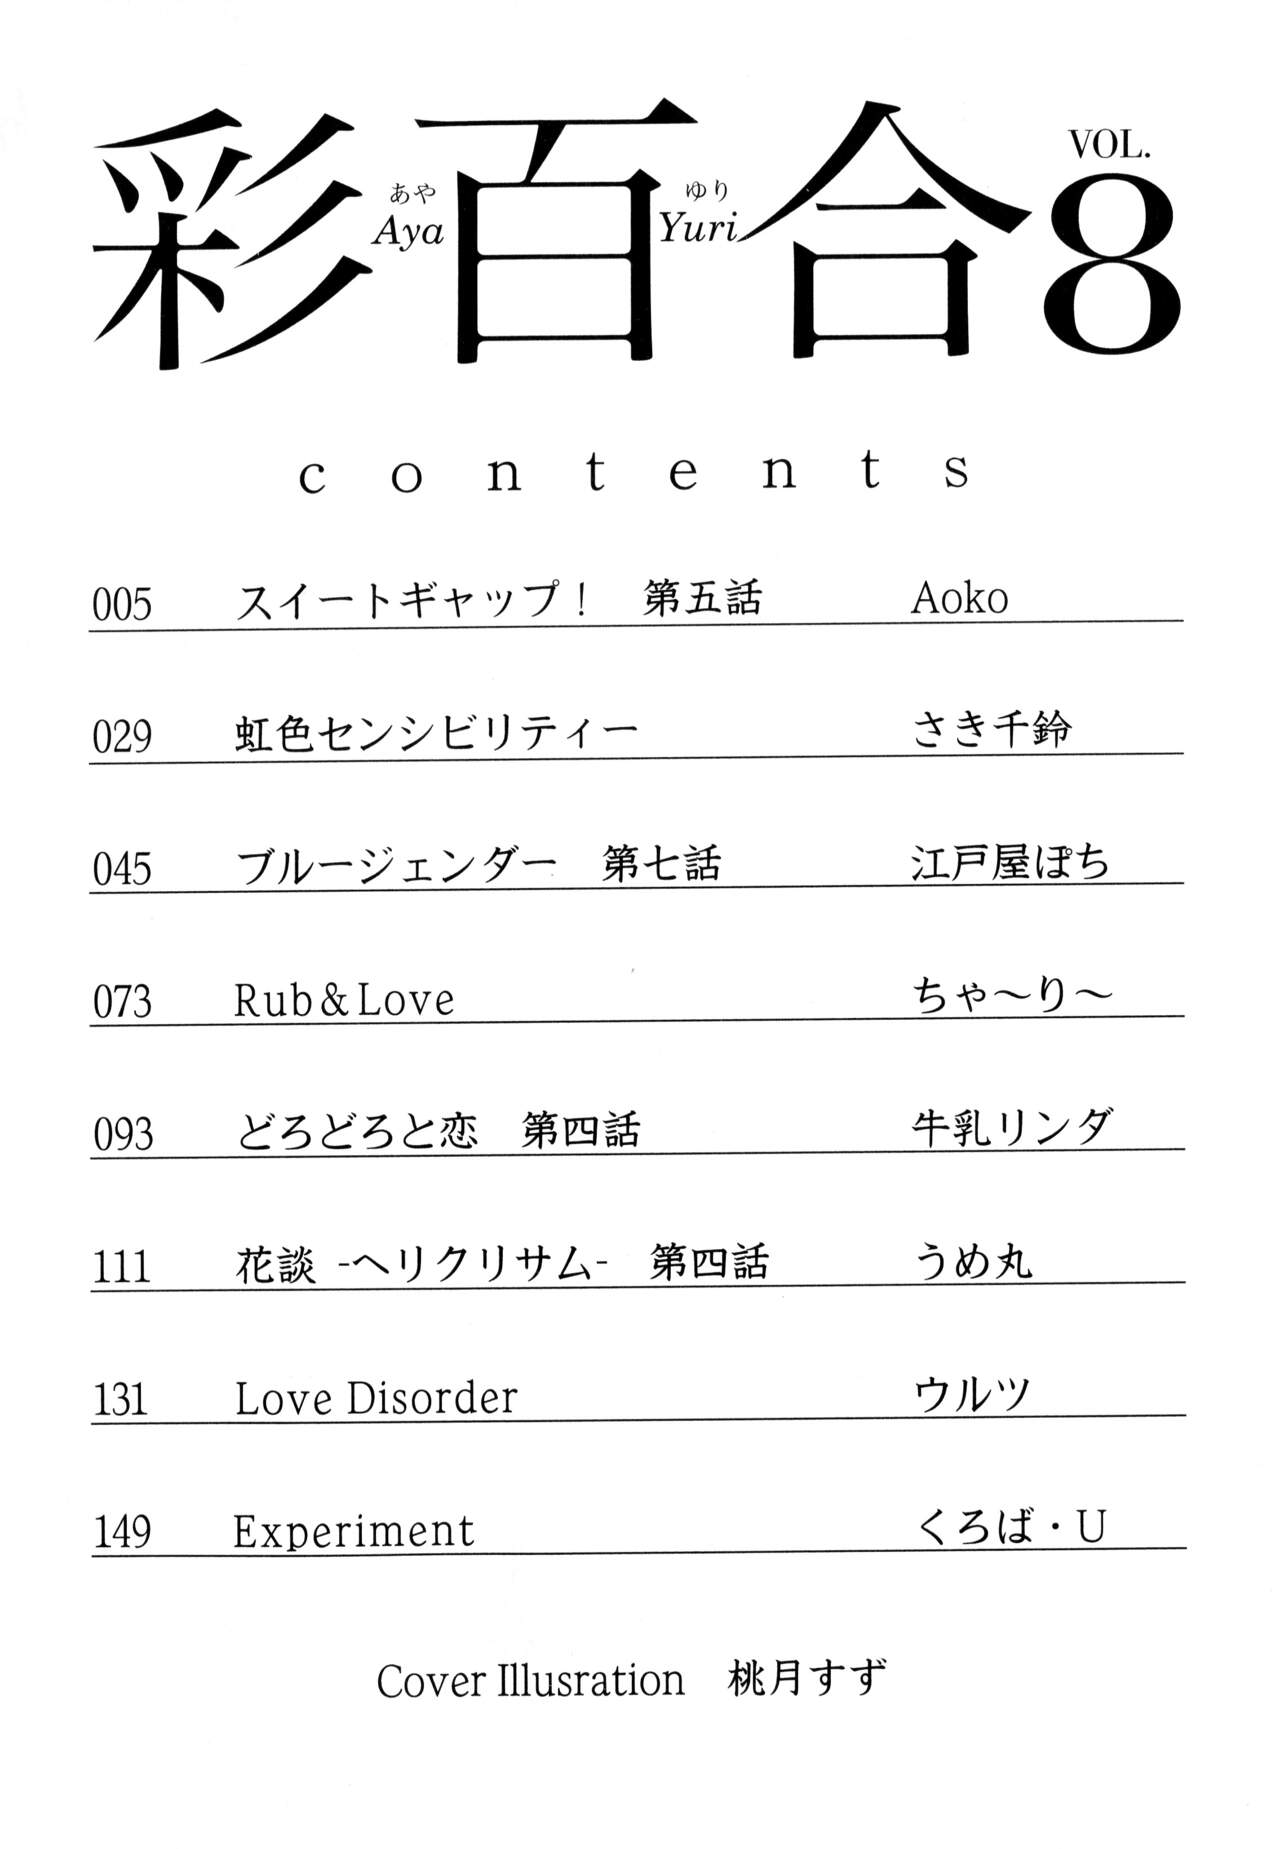 彩百合 VOL. 8
あや ゆり
Aya Yuri
contents
005 スイートギャップ! 第五話 Aoko
029 虹色センシビリティー さき千鈴
045 ブルージェンダー 第七話 江戸屋ぽち
073 Rub&Love ちゃ〜り〜
093 どろどろと恋 第四話 牛乳リンダ
111 花談 -ヘリクリサム- 第四話 うめ丸
131 Love Disorder ウルツ
149 Experiment くろば・U
Cover Illusration 桃月すず